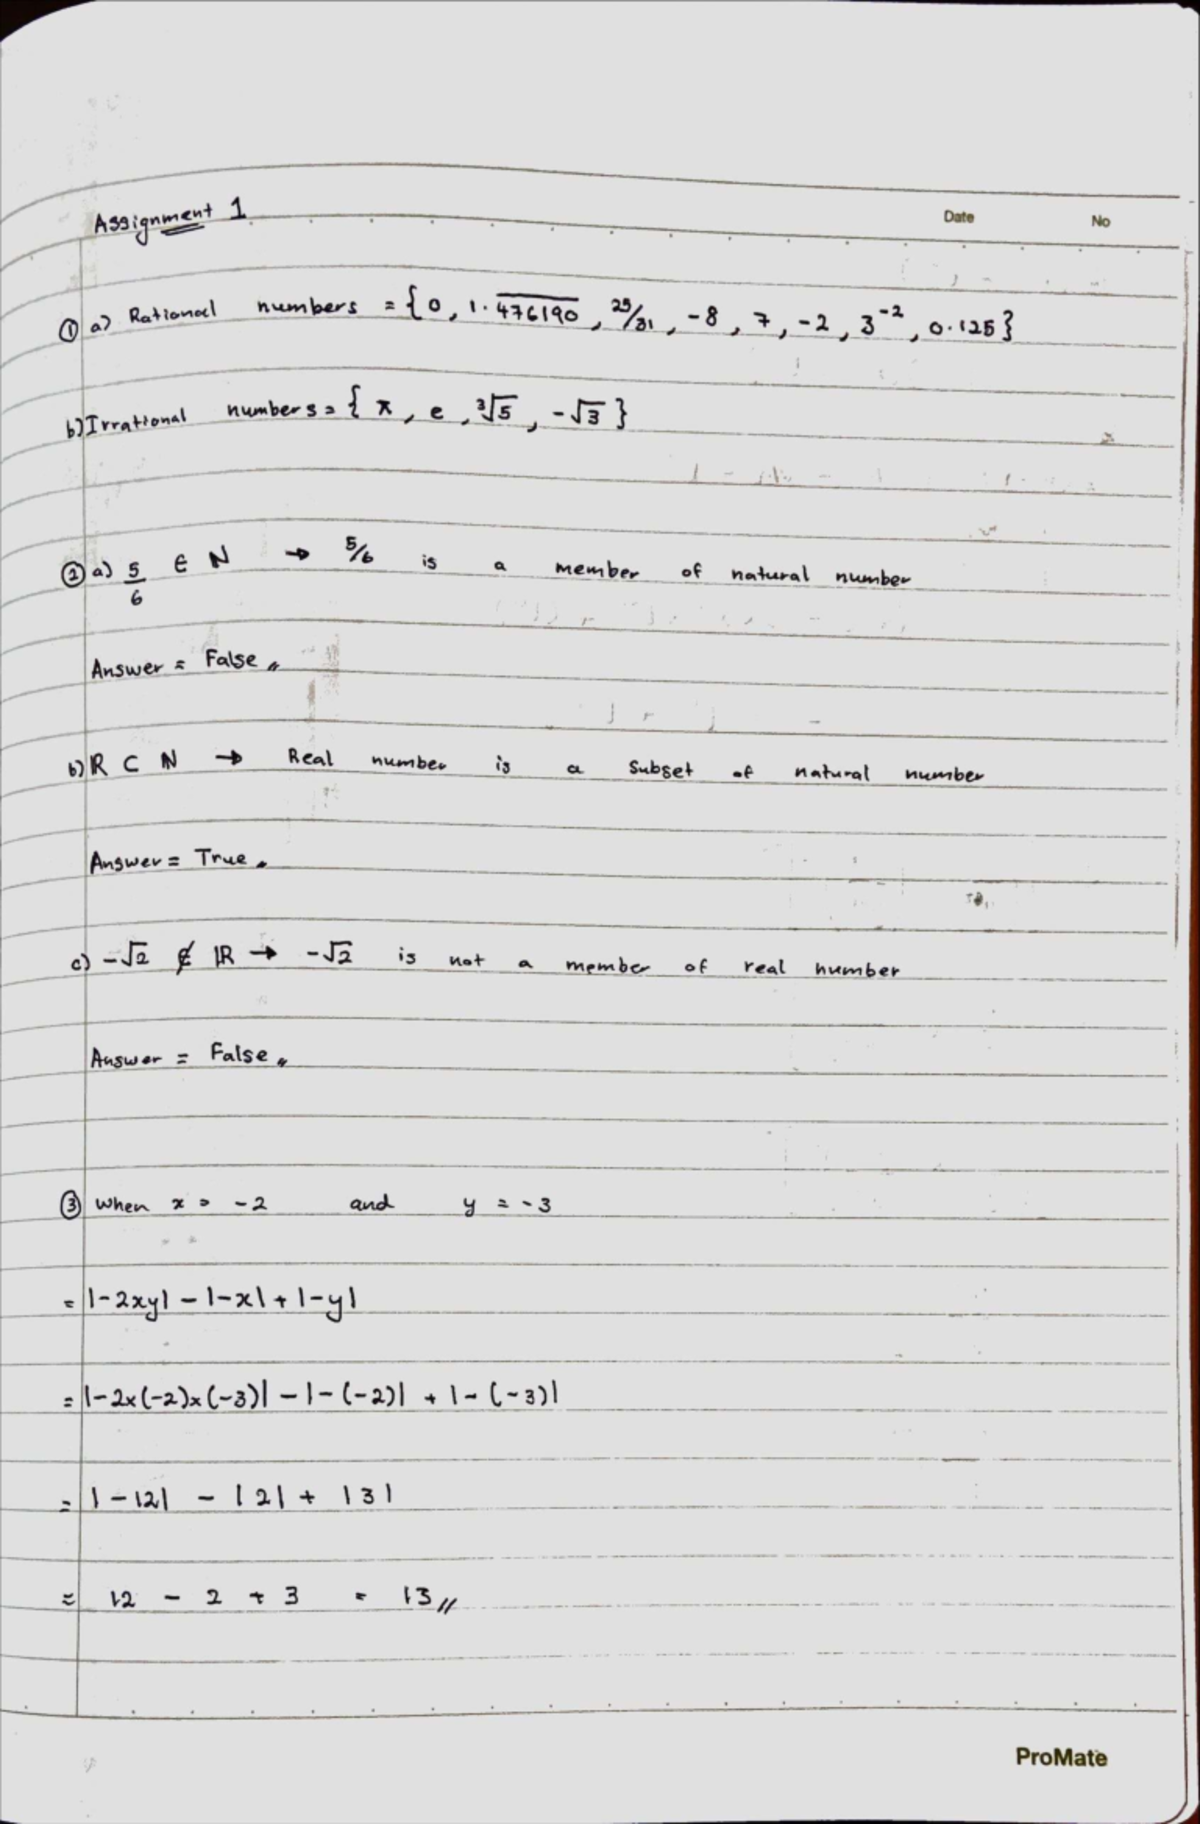 Assignment 1
Date No
① a) Rational numbers = { 0, 1.\overline{476190}, 25/31, -8, 7, -2, 3⁻², 0.125 }
b) Irrational numbers = { π, e, ³√5, -√3 }
② a) 5/6 ∈ N → 5/6 is a member of natural number
Answer = False //
b) R ⊂ N → Real number is a subset of natural number
Answer = True //
c) -√2 ∉ R → -√2 is not a member of real number
Answer = False //
③ When x = -2 and y = -3
= |-2xy| - |-x| + |-y|
= |-2x(-2)x(-3)| - |-(-2)| + |-(-3)|
= |-12| - |2| + |3|
= 12 - 2 + 3 = 13 //
ProMate